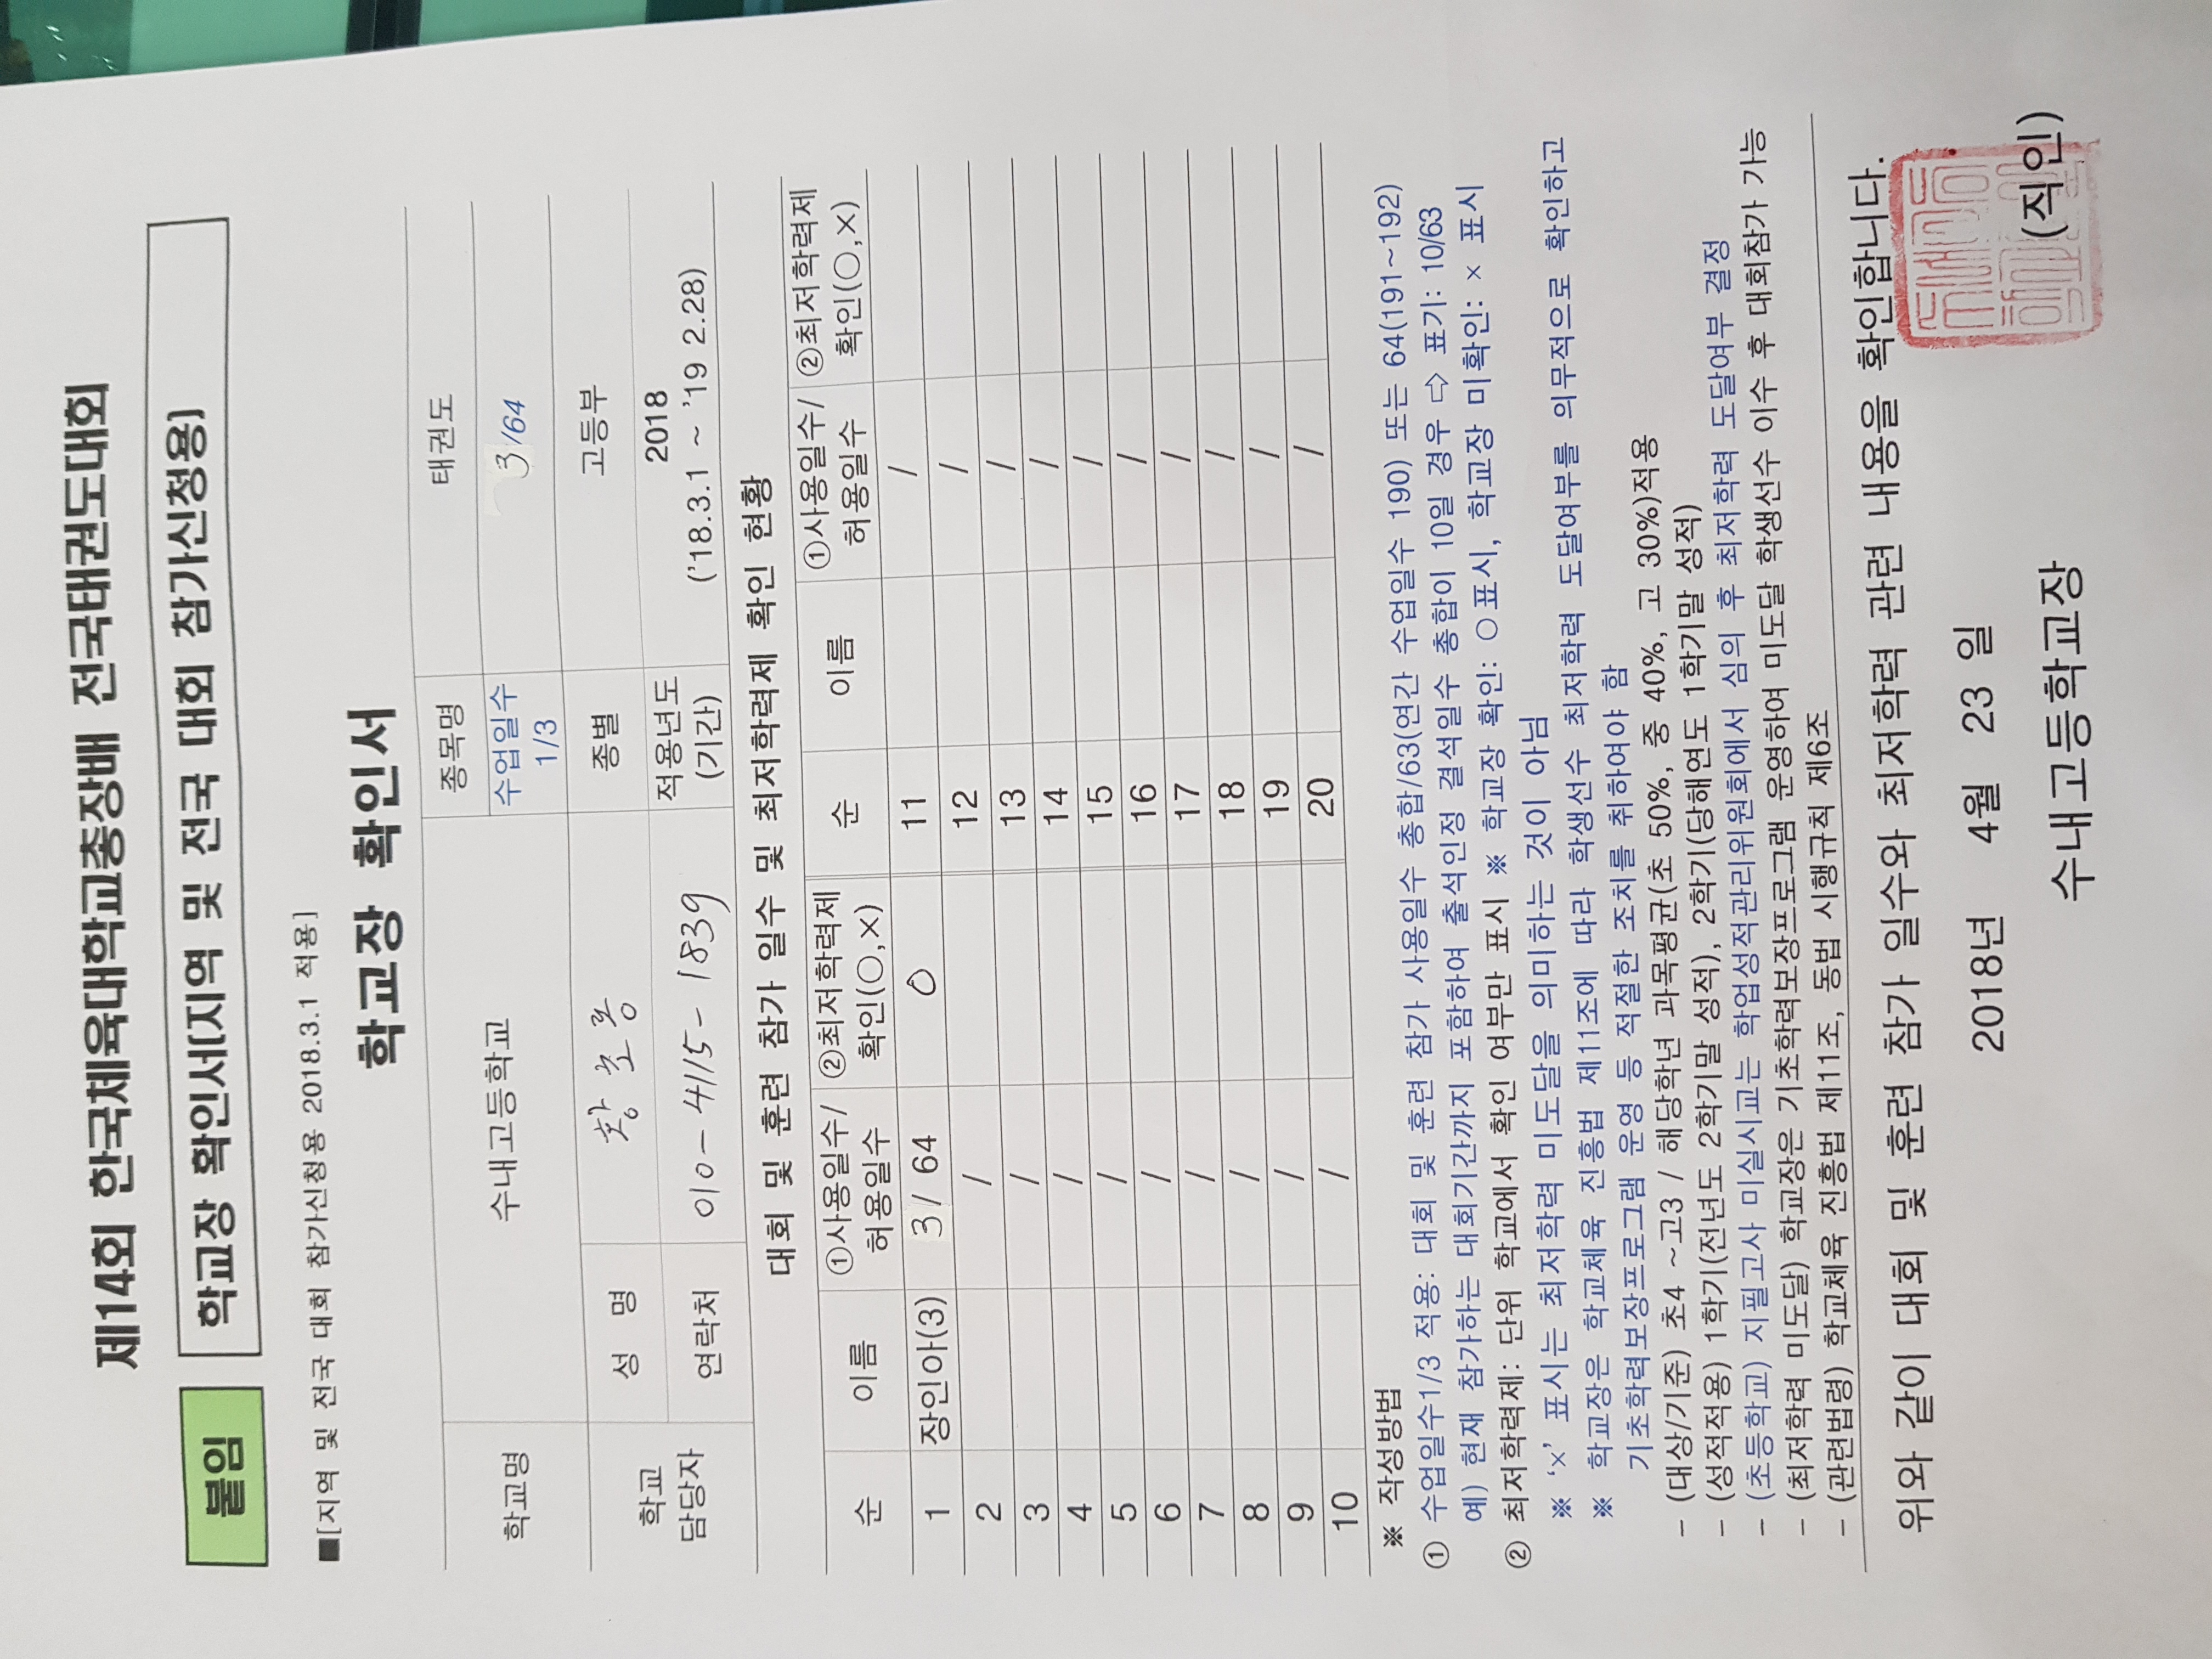 제14회 한국체육대학교총장배 전국태권도대회
붙임
학교장 확인서(지역 및 전국 대회 참가신청용)
■[지역 및 전국 대회 참가신청용 2018.3.1 적용]
학교장 확인서
학교명 수내고등학교 종목명 태권도
수업일수 1/3 3/64
학교 담당자 성 명 종별 고등부
연락처 010-4115-1839 적용년도 (기간) 2018 ('18.3.1 ~ '19 2.28)
대회 및 훈련 참가 일수 및 최저학력제 확인 현황
순 이름 ①사용일수/허용일수 ②최저학력제 확인(○,×) 순 이름 ①사용일수/허용일수 ②최저학력제 확인(○,×)
1 장인아(3) 3/ 64 O 11 /
2 / 12 /
3 / 13 /
4 / 14 /
5 / 15 /
6 / 16 /
7 / 17 /
8 / 18 /
9 / 19 /
10 / 20 /
※ 작성방법
① 수업일수1/3 적용: 대회 및 훈련 참가 사용일수 총합/63(연간 수업일수 190) 또는 64(191~192)
예) 현재 참가하는 대회기간까지 포함하여 출석인정 결석일수 총합이 10일 경우 ⇨ 표기: 10/63
② 최저학력제: 단위 학교에서 확인 여부만 표시 ※ 학교장 확인: ○ 표시, 학교장 미확인: × 표시
※ '×' 표시는 최저학력 미도달을 의미하는 것이 아님
※ 학교장은 학교체육 진흥법 제11조에 따라 학생선수 최저학력 도달여부를 의무적으로 확인하고
기초학력보장프로그램 운영 등 적절한 조치를 취하여야 함
- (대상/기준) 초4 ~고3 / 해당학년 과목평균(초 50%, 중 40%, 고 30%)적용
- (성적적용) 1학기(전년도 2학기말 성적), 2학기(당해연도 1학기말 성적)
- (초등학교) 지필고사 미실시교는 학업성적관리위원회에서 심의 후 최저학력 도달여부 결정
- (최저학력 미도달) 학교장은 기초학력보장프로그램 운영하여 미도달 학생선수 이수 후 대회참가 가능
- (관련법령) 학교체육 진흥법 제11조, 동법 시행규칙 제6조
위와 같이 대회 및 훈련 참가 일수와 최저학력 관련 내용을 확인합니다.
2018년 4월 23 일
수내고등학교장 (직인)